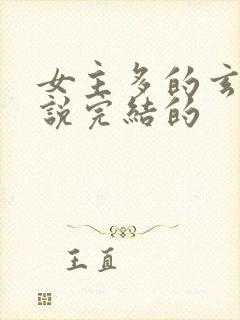 女主多的玄
說完結的
王直